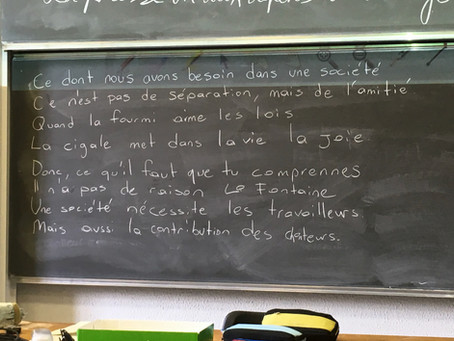 Ce dont nous avons besoin dans une société
Ce n'est pas de séparation, mais de l'amitié
Quand la fourmi aime les lois
La cigale met dans la vie la joie
Donc, ce qu'il faut que tu comprennes
Il n'a pas de raison La Fontaine
Une société nécessite les travailleurs
Mais aussi la contribution des chanteurs.